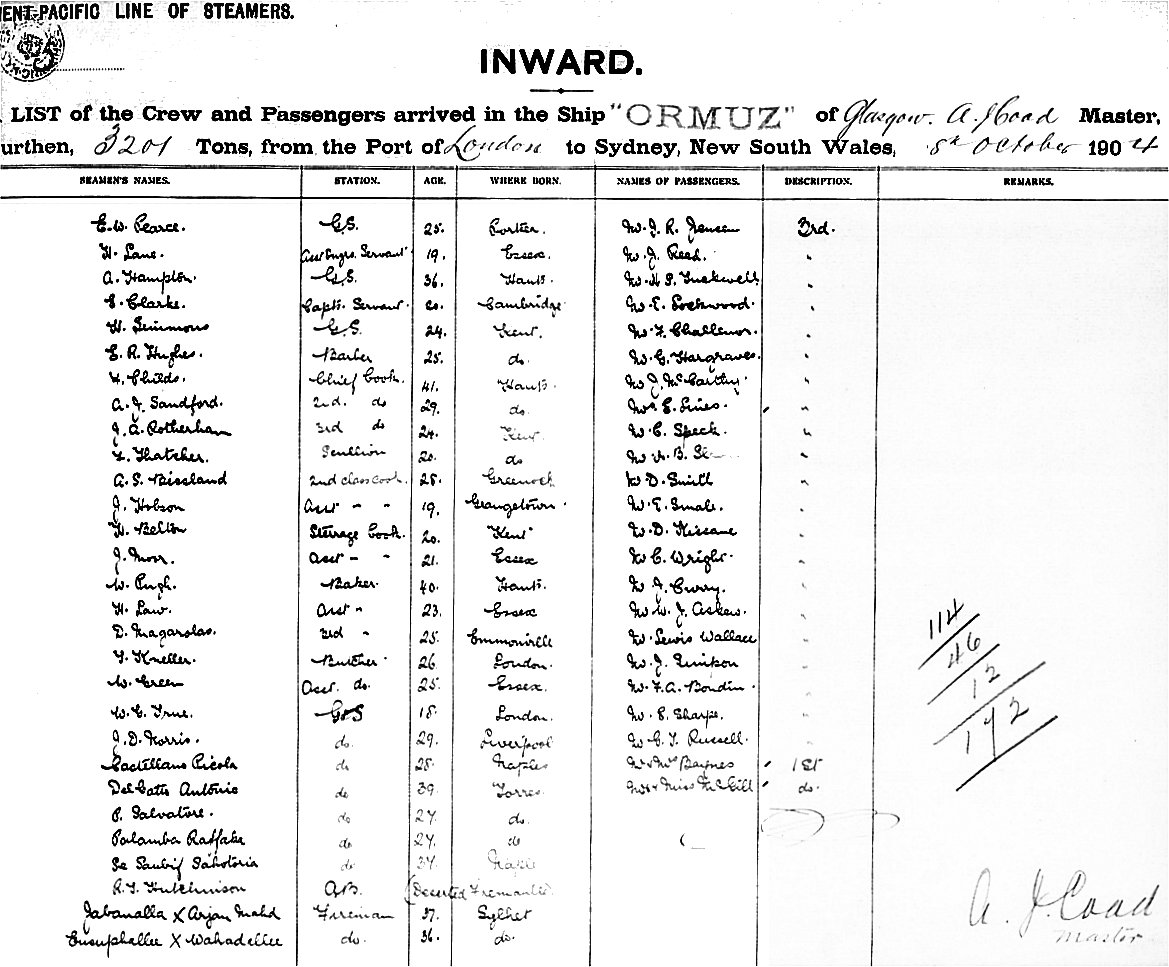 ENT-PACIFIC LINE OF STEAMERS.
INWARD.
LIST of the Crew and Passengers arrived in the Ship "ORMUZ" of Glasgow. A. J. Coad Master,
urthen, 3201 Tons, from the Port of London to Sydney, New South Wales, 8th October 1904
SEAMEN'S NAMES. STATION. AGE. WHERE BORN. NAMES OF PASSENGERS. DESCRIPTION. REMARKS.
E. W. Pearce. G.S. 25. Mr. J. R. Jensen 3rd.
H. Lane. Asst Engrs. Servant 19. Essex. Mr. J. Reed. "
A. Hampton. G.S. 36. Hants. Mr. H. P. Tuckwell "
E. Clarke. Capts. Servant 20. Cambridge Mr. E. Lockwood. "
H. Simmons G.S. 24. Kent. Mr. F. Challenor. "
E. R. Hughes. Barber 25. do. Mr. G. Hargraves. "
Childs. Chief Cook. 41. Hants. Mr J. McCarthy "
A. J. Sandford. 2nd. do 29. do. E. Lines. "
J. A. Rotherham 3rd do 24. Kent. Mr. C. Speck. "
Thatcher. Scullion 20. do "
A. S. Bissland 2nd class cook. 25. Greenock Mr D. Smith "
J. Hobson Asst " " 19. Grangetown. Mr. E. Smale. "
H. Belton Steerage Cook. 20. Kent Mr. D. Kissane "
J. Asst " " 21. Essex Mr C. Wright. "
W. Pugh. Baker. 40. Hants. Mr J. Curry. "
H. Law. Asst " 23. Essex Mr. W. J. Askew. "
D. Magarolas. 3rd " 25. Emmonville Mr. Lewis Wallace "
Kneller. Butcher 26. London. Mr. J. Simpson "
W. Green Asst. do. 25. Essex. Mr. F. A. Boudin. "
W. C. True. G.S 18. London. Mr. S. Sharpe. "
J. D. Norris. do. 29. Liverpool Mr G. T. Russell. "
Castellano Nicola do 28. Naples Mr & Mrs Baynes 1st
Del Gatto Antonio do 39. Torres. Mrs & Miss McGill do.
P. Salvatore. do 27. do.
Palamba do 27. do
do 37.
R. T. Hutchinson A.B. (Deserted Fremantle)
Jabanalla X Arjan Mahd Fireman 37. Sylhet
Eusuphallee X Wahadellee do. 36. do.
114
46
12
172
A. J. Coad
Master